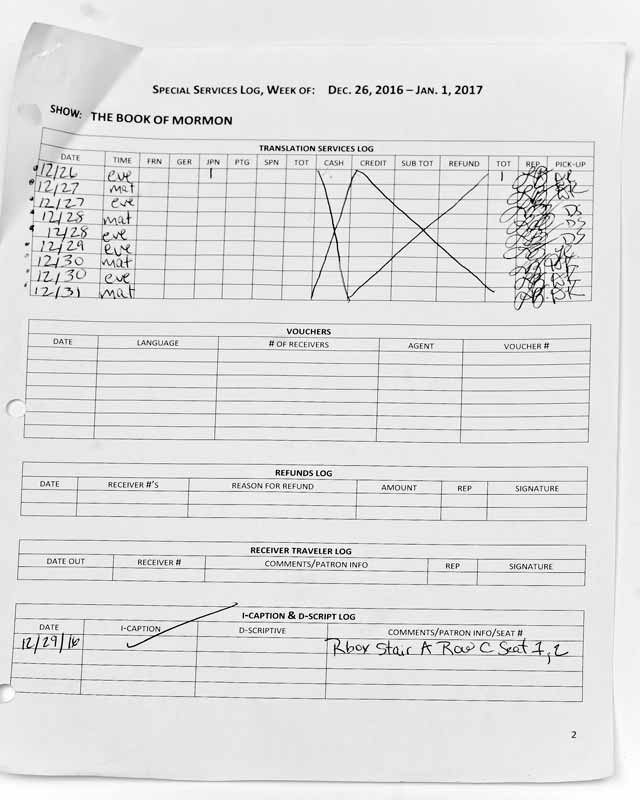 SPECIAL SERVICES LOG, WEEK OF: DEC. 26, 2016 – JAN. 1, 2017
SHOW: THE BOOK OF MORMON
TRANSLATION SERVICES LOG
DATE TIME FRN GER JPN PTG SPN TOT CASH CREDIT SUB TOT REFUND TOT REP PICK-UP
12/26 eve 1 1
12/27 mat
12/27 eve
12/28 mat DS
12/28 eve DS
12/29 eve
12/30 mat
12/30 eve
12/31 mat
VOUCHERS
DATE LANGUAGE # OF RECEIVERS AGENT VOUCHER #
REFUNDS LOG
DATE RECEIVER #'S REASON FOR REFUND AMOUNT REP SIGNATURE
RECEIVER TRAVELER LOG
DATE OUT RECEIVER # COMMENTS/PATRON INFO REP SIGNATURE
I-CAPTION & D-SCRIPT LOG
DATE I-CAPTION D-SCRIPTIVE COMMENTS/PATRON INFO/SEAT #
12/29/16 ✓ Rbox Stair A Row C Seat 1,2
2